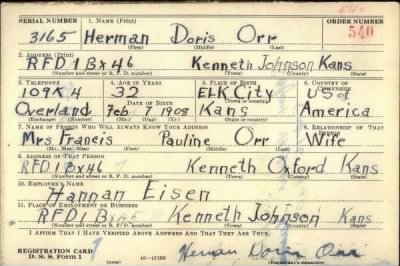 540
SERIAL NUMBER 1. NAME (Print) ORDER NUMBER
3165 Herman Doris Orr 540
(First) (Middle) (Last)
2. ADDRESS (Print)
RFD 1 Bx 46 Kenneth Johnson Kans
(Number and street or R. F. D. number) (Town) (County) (State)
3. TELEPHONE 4. AGE IN YEARS 5. PLACE OF BIRTH 6. COUNTRY OF CITIZENSHIP
109K4 32 ELK City USa
Overland DATE OF BIRTH (Town or county)
Feb 1908 Kans America
(Exchange) (Number) (Mo.) (Day) (Yr.) (State or country)
7. NAME OF PERSON WHO WILL ALWAYS KNOW YOUR ADDRESS 8. RELATIONSHIP OF THAT PERSON
Mrs Francis Pauline Orr Wife
(Mr., Mrs., Miss) (First) (Middle) (Last)
9. ADDRESS OF THAT PERSON
RFD 1 Bx 46 Kenneth Oxford Kans
(Number and street or R. F. D. number) (Town) (County) (State)
10. EMPLOYER'S NAME
Hannan Eisen
11. PLACE OF EMPLOYMENT OR BUSINESS
RFD 1 Bx Kenneth Johnson Kans
(Number and street or R. F. D. number) (Town) (County) (State)
I AFFIRM THAT I HAVE VERIFIED ABOVE ANSWERS AND THAT THEY ARE TRUE.
REGISTRATION CARD
D. S. S. Form 1 16—17105 Herman Doris Orr
(Registrant's signature)